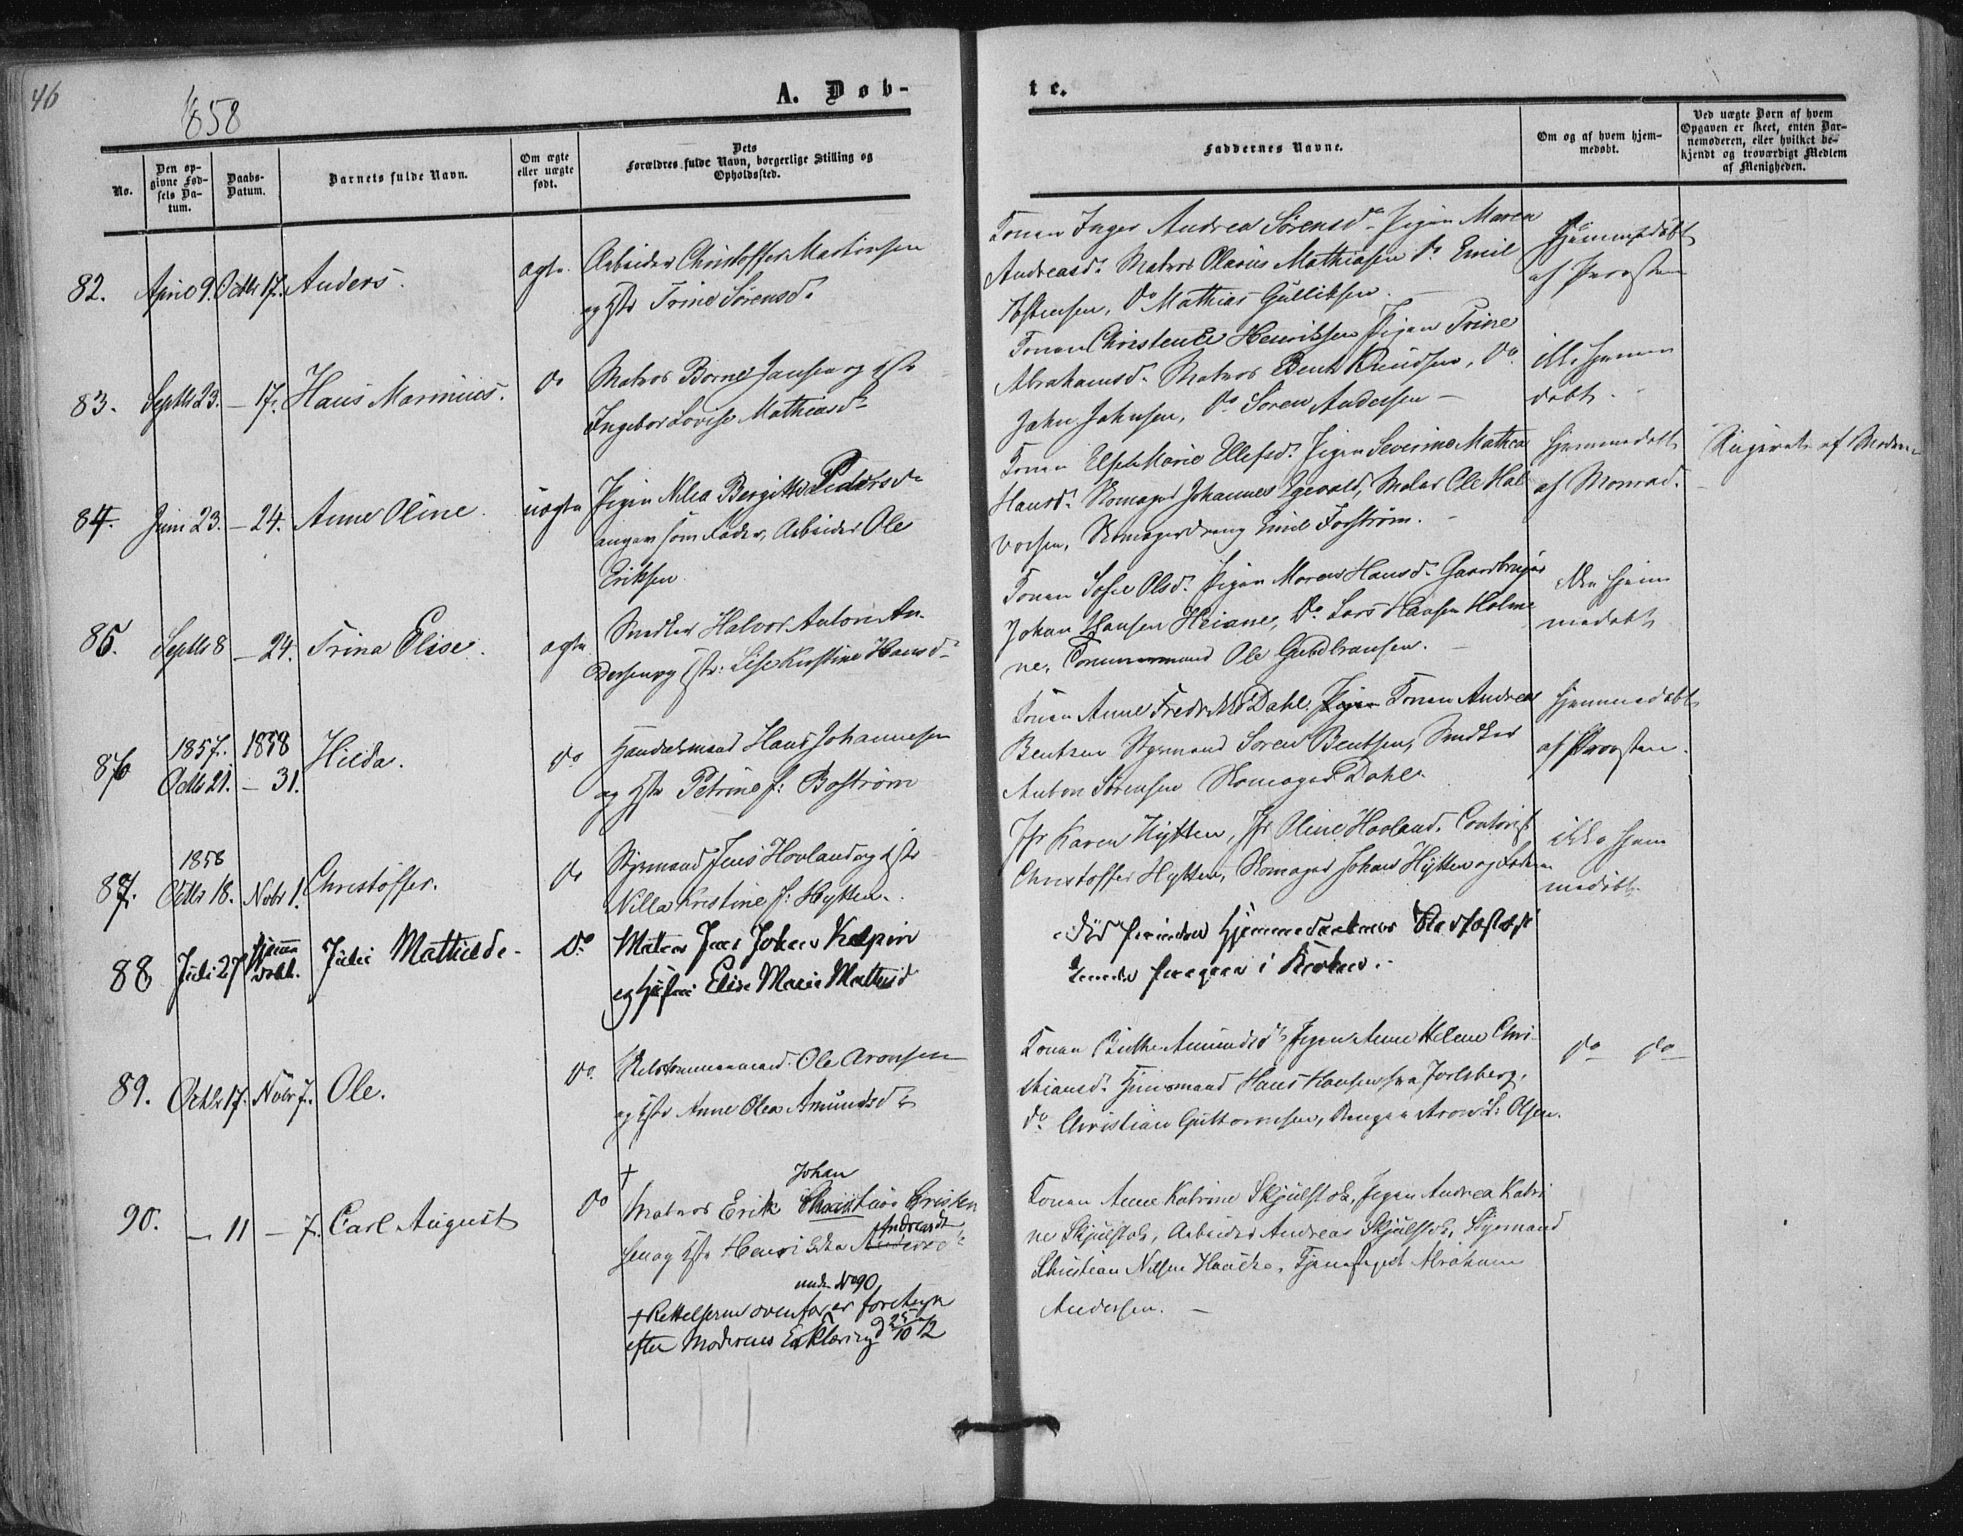 46
1858
A. Døb-
te.
No.
Den opgivne Fødsels Datum.
Daabs-Datum.
Barnets fulde Navn.
Om ægte eller uægte født.
Dets Forældres fulde Navn, borgerlige Stilling og Opholdssted.
Faddernes Navne.
Om og af hvem hjemmedøbt.
Ved uægte Børn af hvem Opgaven er skeet, enten Barnemoderen, eller hvilket bekjendt og troværdigt Medlem af Menigheden.
82. April 9. Octbr 17. Anders. ægte
Arbeider Christoffer Martinsen
og Hstr Trine Sørensd.
Konen Inger Andrea Sørensd. Pigen Maren
Andreasd. Matros Olavus Mathiasen do Emil
do Mathias Gulliksen.
Hjemmedøbt
af Provsten
83. Septbr 23. – 17. Hans Marinius. do
Matros Borne Jansen og Hstr
Ingebor Lovise Mathiasd.
Konen Christence Henriksen Pigen Trine
Abrahamsd. Matros Bent Knudsen, do
John Johnsen, do Søren Andersen –
ikke hjemme
døbt.
84. Juni 23. – 24. Anne Oline. uægte
Pigen Nilia Bergitte Pedersd.
angav som Fader, Arbeider Ole
Eriksen
Konen Elsche Marie Ellefsd. Pigen Severine Mathea
Hansd. Skomager Johannes Egevald, Maler Ole Hal
vorsen, Skomagerdreng Emil Forstrøm. –
hjemmedøbt
af Monrad.
af Moderen
85. Septbr 8 – 24. Trina Elise. ægte
Snedker Halvor Anton An-
dersen og Hstr: Lise Kirstine Hansd.
Konen Sofie Olsd. Pigen Maren Hansd. Gaardbruger
Johan Hansen Heiane, do Lars Hansen Holme
ne, Tømmermand Ole Guldbransen.
ikke hjem
medøbt
86 1857. Octbr 21. 1858 – 31. Hilda. do
Handelsmand Hans Johannesen
og Hstr Petrine f: Bostrøm
Konen Anne Fredrikke Dahl, Pigen Konen Andrea
Bentsen Styrmand Søren Bentsen, Snedker
Anton Sørensen Skomager Dahl.
hjemmedøbt
af Provsten.
87. 1858 Octbr 18. Novbr 1. Christoffer. do
Styrmand Jens Hovland og Hstr
Nilla Kristine f: Hytten.
Jfr Karen Hytten, Jfr Oline Hovland, Contorist
Christoffer Hytten, Skomager Johan Hytten og Faderen
ikke hjem
medøbt
88 Juli 27 Hjemme døbt. Julie Mathilde. do
Matros Jens Johan Kalpin
og Hustru Elise Marie Mathisd
Død forinden Hjemmedaabens Stadfæstelse
kunde foregaa i Kirken.
89. Octbr 17. Novbr 7. Ole. do
Ole Aronsen
og Hstr Anne Olea Amundsd.
Konen Amundsd. Pigen Anne Helene Chri-
stiansd. Huusmand Hans Hansen fra Jarlsberg,
do Christian Guttormsen, Drengen Aron Olsen.
do do
90. – 11 – 7. Carl August do
+ Johan
Matros Erik Christian Cristen
sen og Hstr Henrikka Andersd. Andreasd.
under No 90
+ Rettelserne ovenfor er foretagn
efter Moderens Erklæring d 25/10 72
Konen Anne Katrine Skjulstok, Pigen Andrea Katri
ne Skjulstok, Arbeider Andreas Skjulstok, Styrmand
Christian Nilsen Haacke, Tjenestegut Abraham
Andersen. –